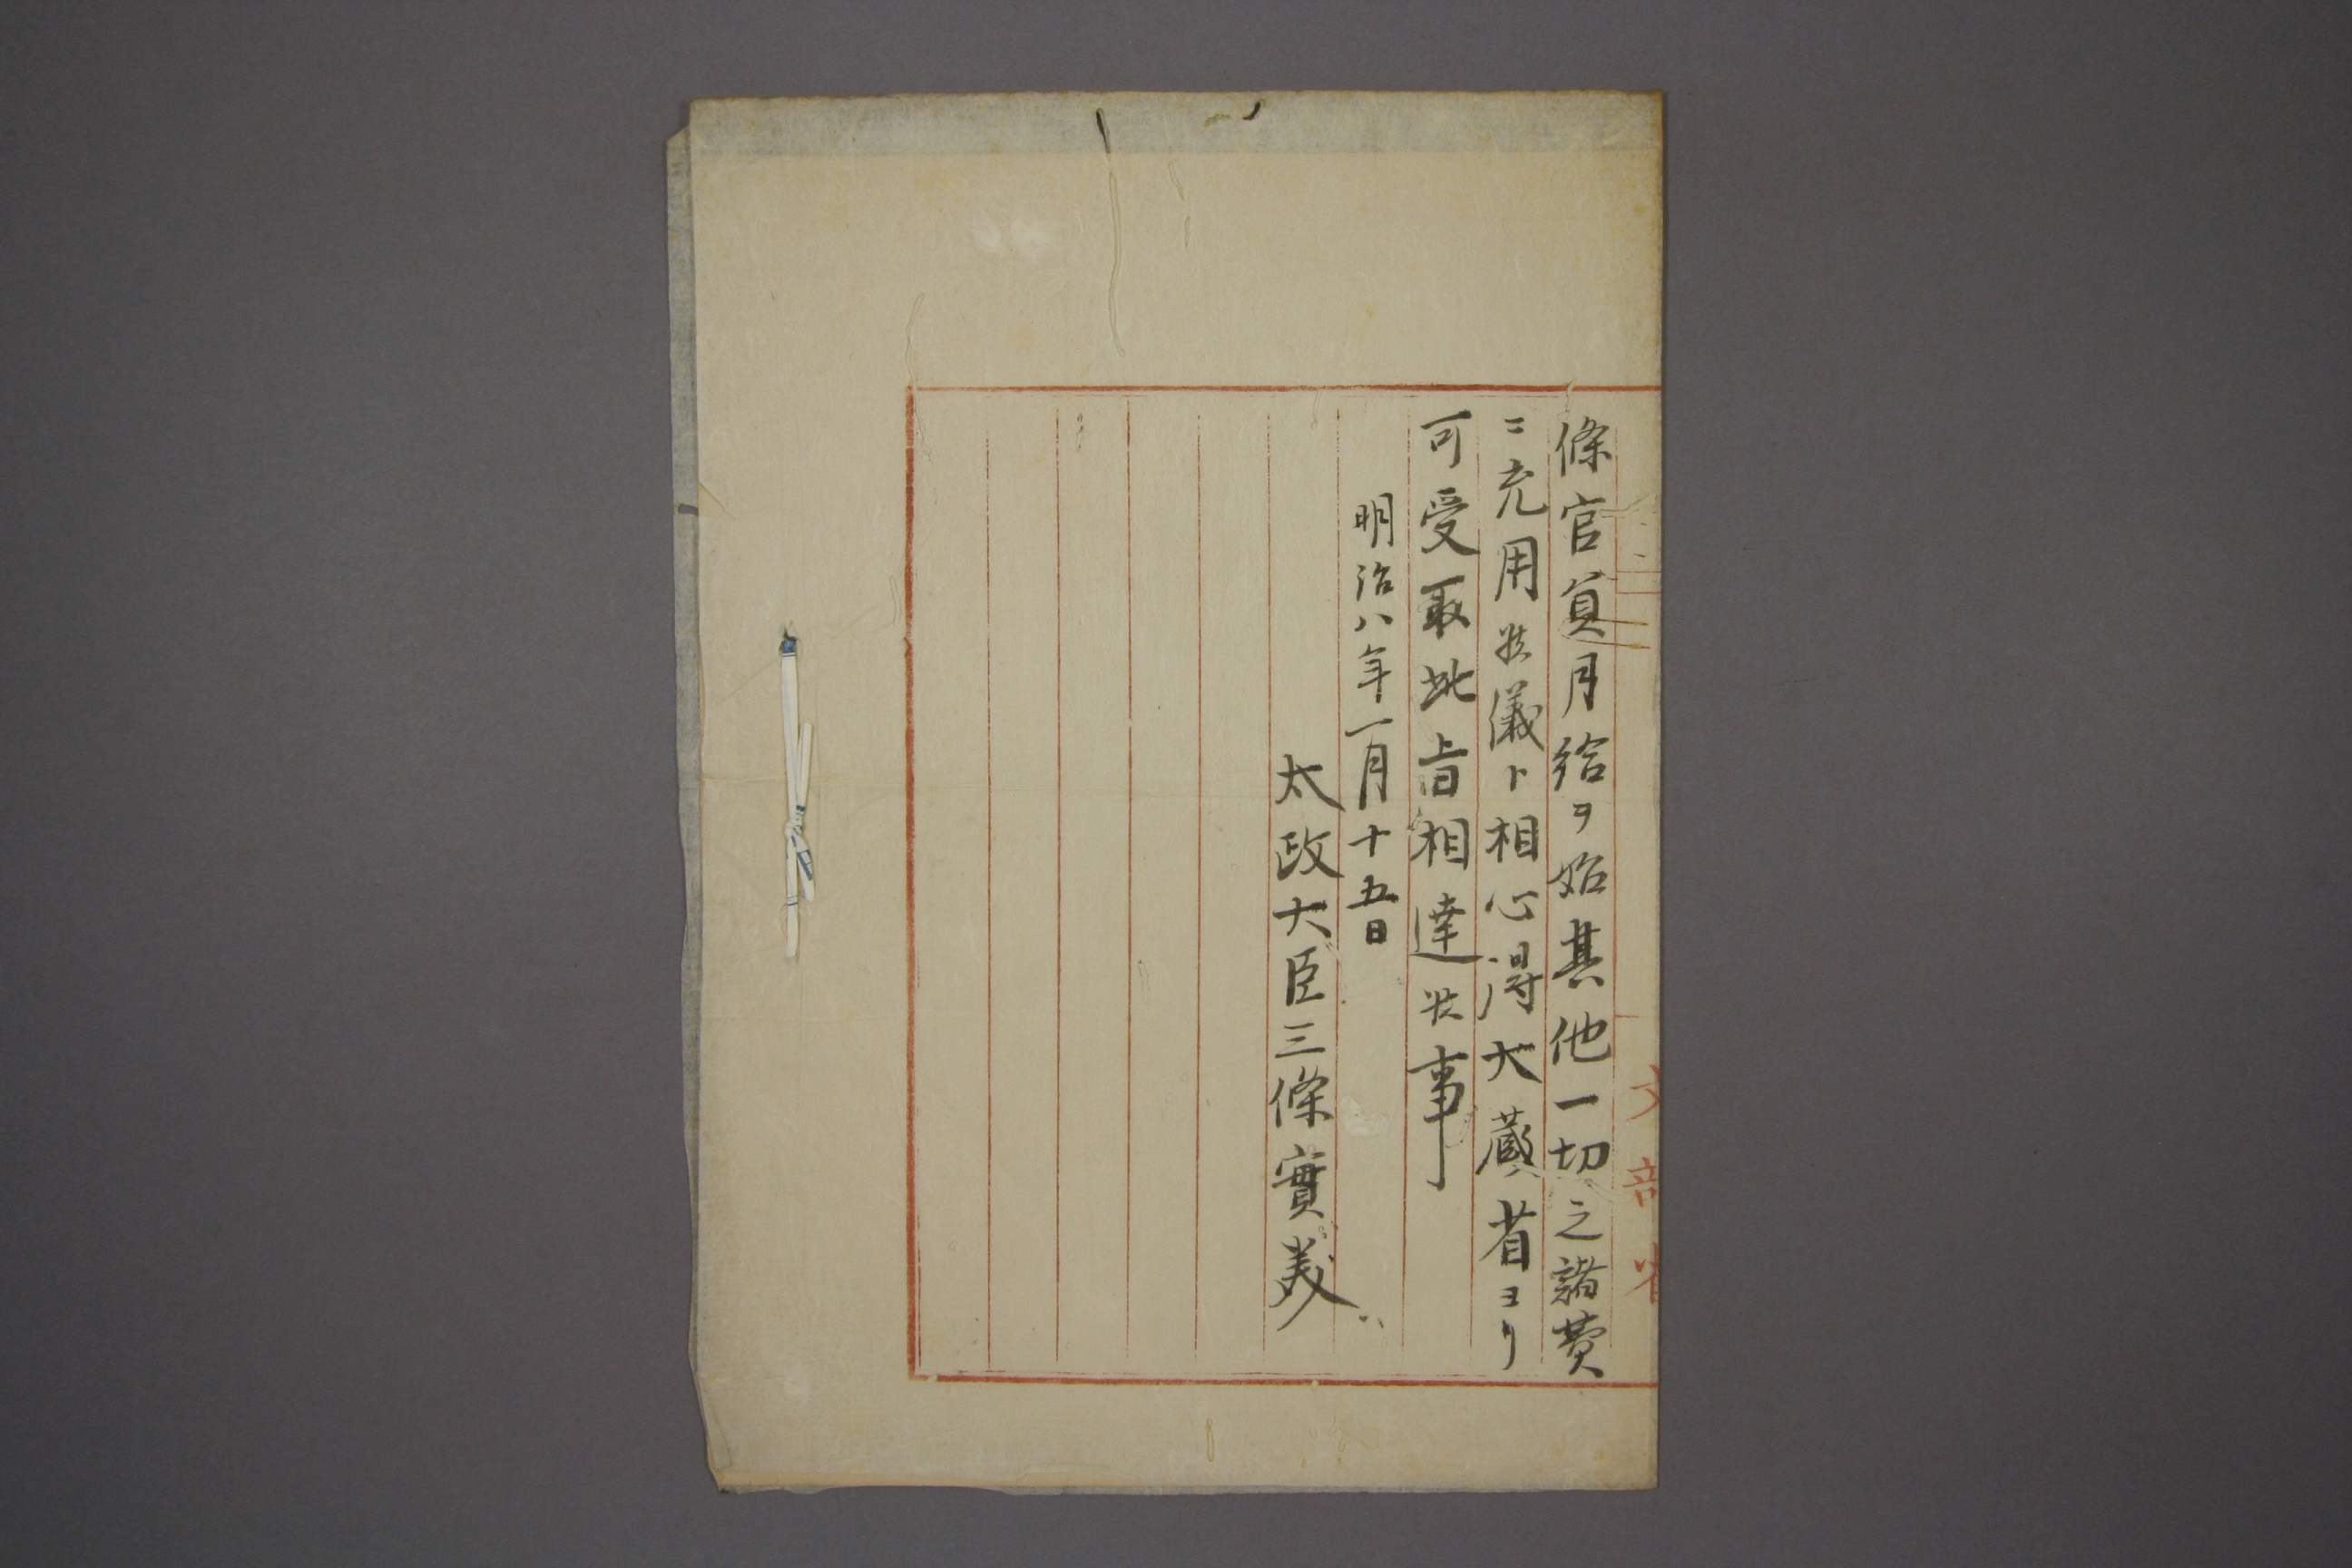 文部省
條官員月給ヲ始其他一切之諸費
ニ充用候儀ト相心得大藏省ヨリ
可受取此旨相達候事
明治八年一月十五日
太政大臣三條實美